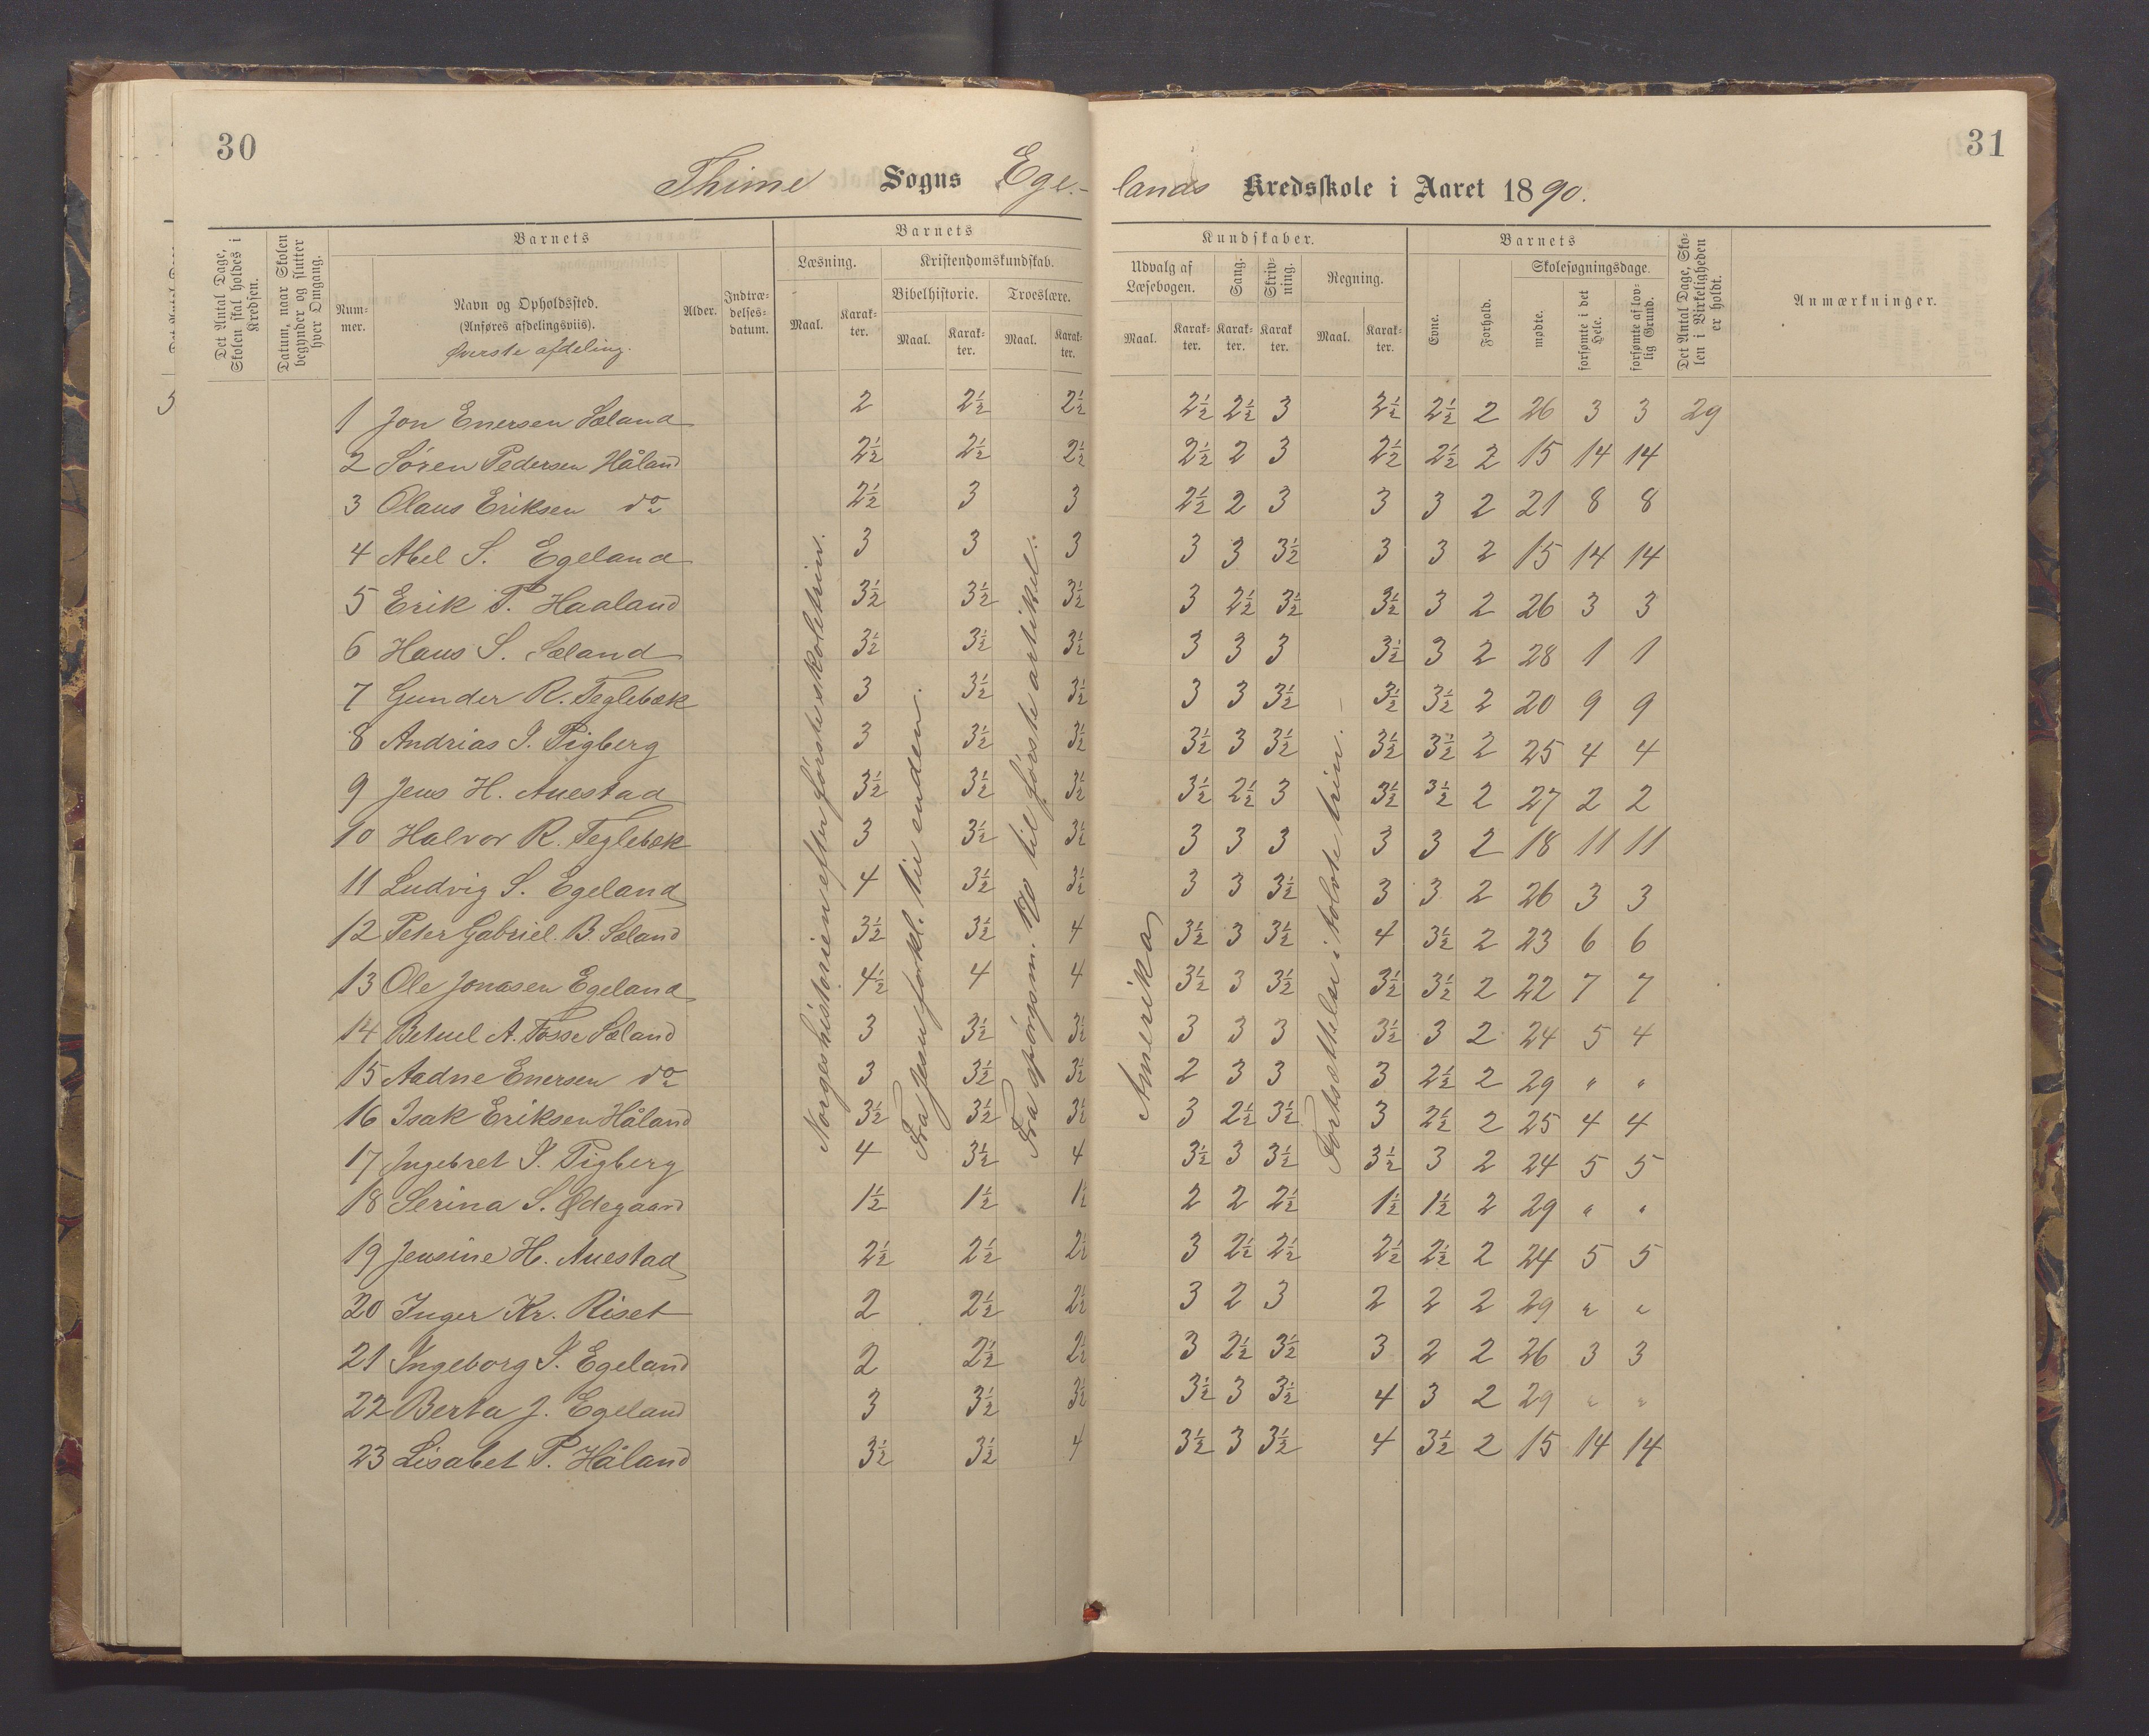 30
31
Thime Sogns Ege-
lands Kredsskole i Aaret 1890.
Det Antal Dage, Skolen skal holdes i Kredsen.
Datum, naar Skolen begynder og slutter hver Omgang.
Barnets
Num-
mer.
Navn og Opholdssted.
(Anføres afdelingsviis).
Øverste afdeling.
Alder.
Indtræ-
delses-
datum.
Barnets
Læsning.
Kristendomskundskab.
Bibelhistorie. Troeslære.
Maal. Karak-
ter.
Maal. Karak-
ter.
Maal. Karak-
ter.
Kundskaber.
Udvalg af
Læsebogen.
Sang.
Skriv-
ning.
Regning.
Maal. Karak-
ter. Karak-
ter. Karak
ter. Maal. Karak-
ter.
Barnets
Evne.
Forhold.
Skolesøgningsdage.
mødte.
forsømte i det Hele.
forsømte af lov-
lig Grund.
Det Antal Dage, Sko-
len i Virkeligheden
er holdt.
Anmærkninger.
1 Jon Enersen Sæland 2 2½ 2½ 2½ 2½ 3 2½ 2½ 2 26 3 3 29
2 Søren Pedersen Håland 2½ 2½ 2½ 2½ 2 3 2½ 2½ 2 15 14 14
3 Olaus Eriksen do 2½ 3 3 2½ 2 3 3 3 2 21 8 8
4 Abel S. Egeland 3 3 3 3 3 3½ 3 3 2 15 14 14
5 Erik P. Haaland 3½ 3½ 3½ 3 2½ 3½ 3½ 3 2 26 3 3
6 Hans S. Sæland 3½ 3½ 3½ 3 3 3 3½ 3 2 28 1 1
7 Gunder R. Teglebæk 3 3½ 3½ 3 3 3½ 3½ 3½ 2 20 9 9
8 Andrias I. Tigberg 3 3½ 3½ 3½ 3 3½ 3½ 3½ 2 25 4 4
9 Jens H. Auestad 3½ 3½ 3½ 3½ 2½ 3 3½ 3½ 2 27 2 2
10 Halvor R. Teglebæk 3 3½ 3½ 3 3 3 3 3 2 18 11 11
11 Ludvig S. Egeland 4 3½ 3½ 3 3 3½ 3 3 2 26 3 3
12 Peter Gabriel. B. Sæland 3½ 3½ 4 3½ 3 3½ 4 3½ 2 23 6 6
13 Ole Jonasen Egeland 4½ 4 4 3½ 3 3½ 3½ 3½ 2 22 7 7
14 Betuel A. Fosse Sæland 3 3½ 3½ 3 3 3 3½ 3 2 24 5 4
15 Aadne Enersen do 3 3½ 3½ 2 3 3 3 2½ 2 29 " "
16 Isak Eriksen Håland 3½ 3½ 3½ 3 2½ 3½ 3 2½ 2 25 4 4
17 Ingebret I. Tigberg 4 3½ 4 3½ 3 3½ 3½ 3 2 24 5 5
18 Serina S. Ødegaard 1½ 1½ 1½ 2 2 2½ 1½ 1½ 2 29 " "
19 Jensine H. Auestad 2½ 2½ 2½ 3 2½ 2½ 2½ 2½ 2 24 5 5
20 Inger Kr. Riset 2 2½ 2½ 3 2 3 2 2 2 29 " "
21 Ingeborg S. Egeland 2 2½ 2½ 3 2½ 3½ 3 2 2 26 3 3
22 Berta J. Egeland 3 3½ 3½ 3½ 3 3½ 4 3 2 29 " "
23 Lisabet P. Håland 3½ 3½ 4 3½ 3 3½ 4 3½ 2 15 14 14
Norgeshistorien efter første skoletrin.
Fra Jesu forkl. til enden.
Fra spørgsm. til første artikel.
Amerika
Fortsættelse i tolvte trin.